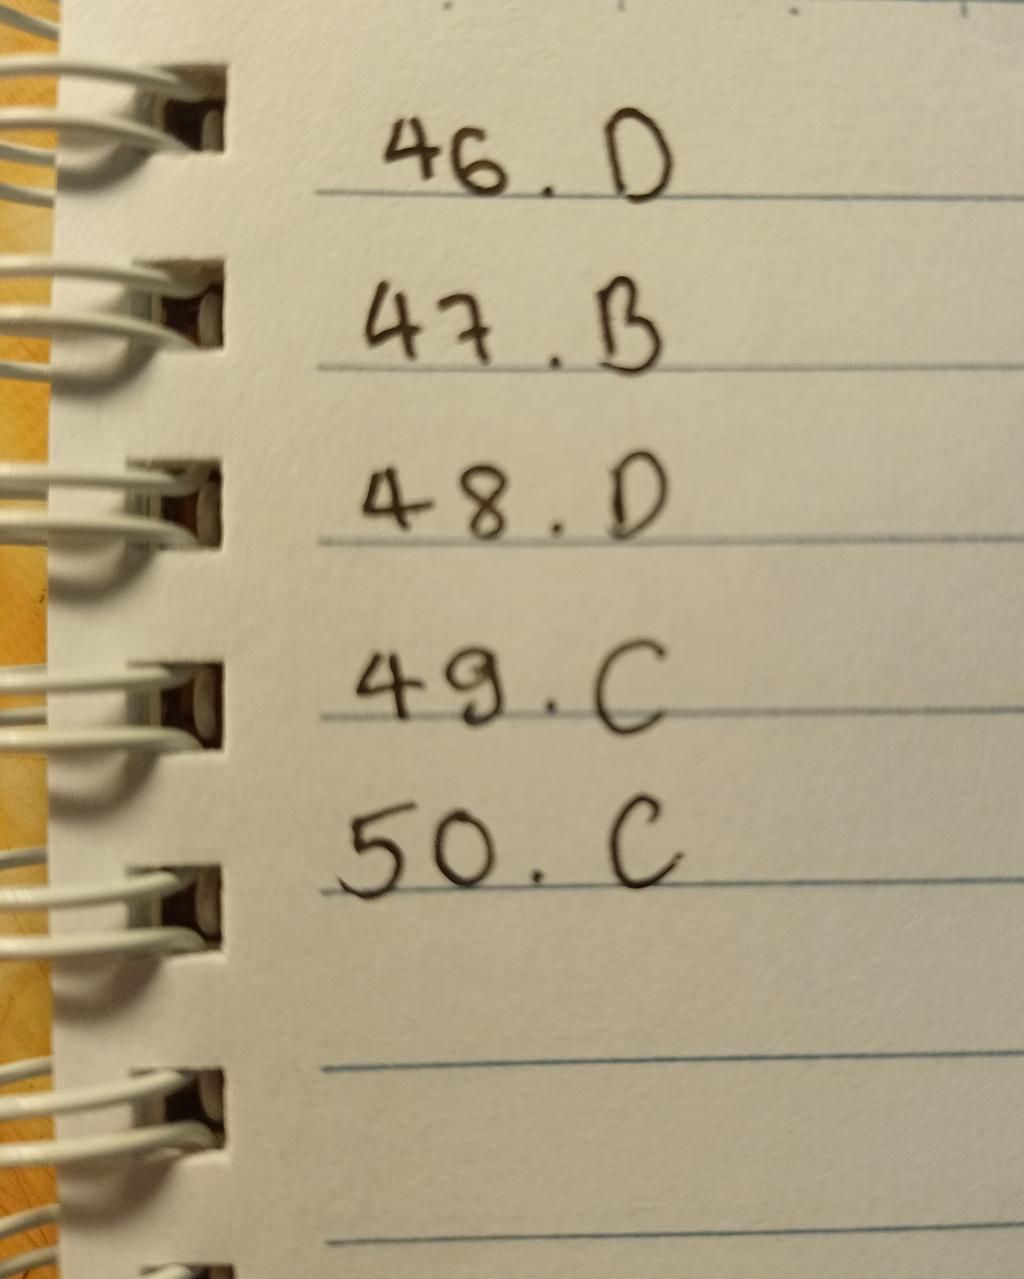 46. D
47. B
48. D
49. C
50. C